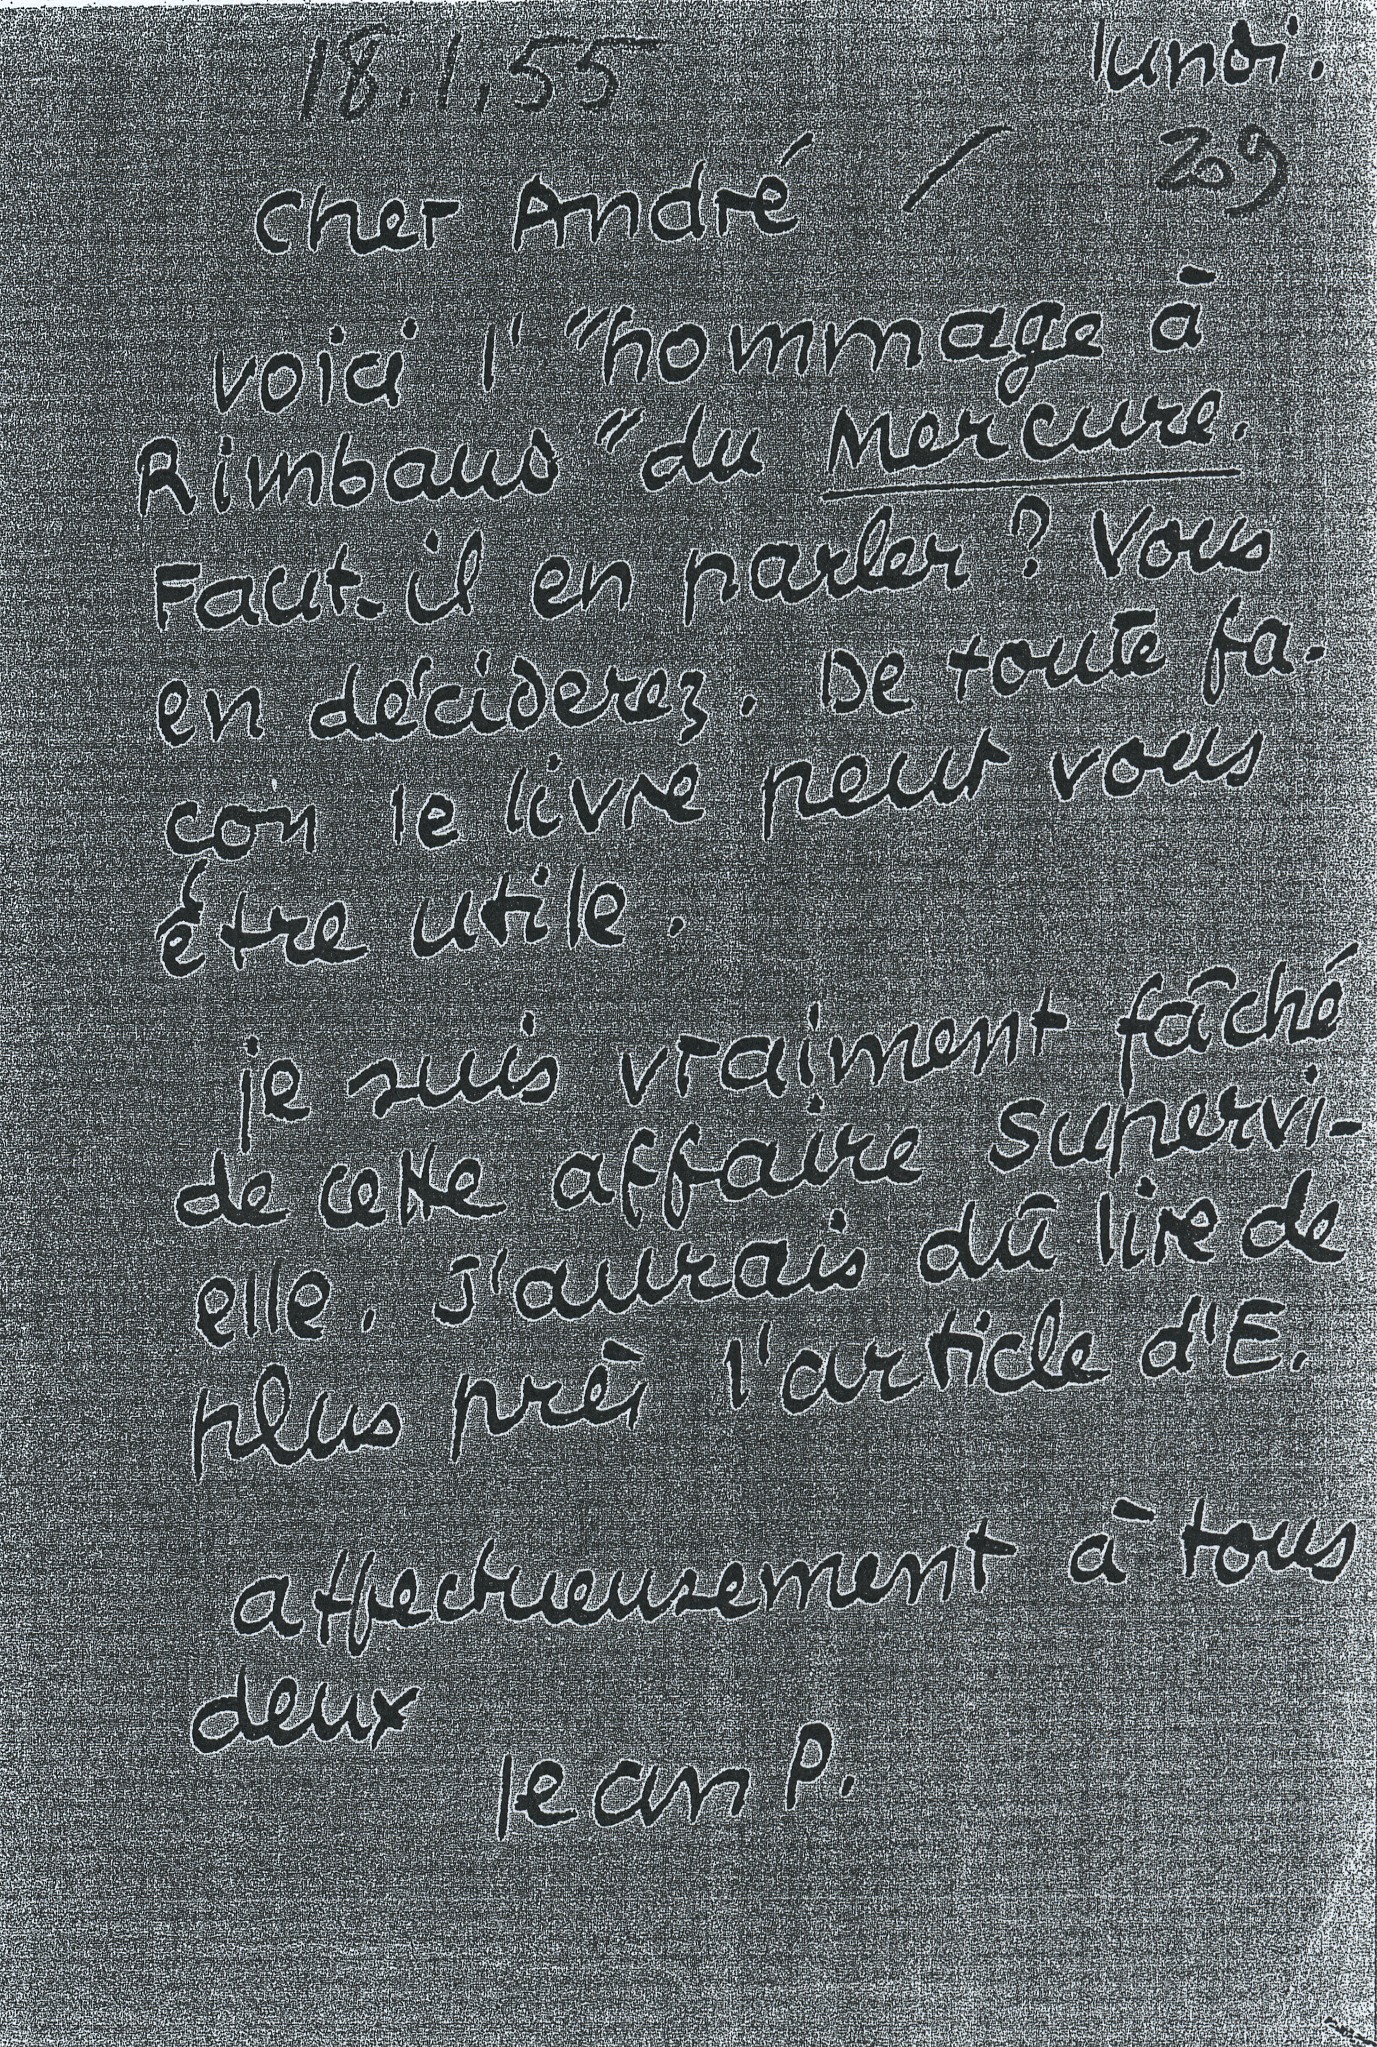 18.1.55
lundi.
209
Cher André
voici l' "hommage à
Rimbaud" du Mercure.
Faut-il en parler ? Vous
en déciderez. De toute fa-
con le livre peut vous
être utile.
je suis vraiment fâché
de cette affaire Supervi-
elle. J'aurais dû lire de
plus près l'article d'E.
affectueusement à tous
deux
Jean P.